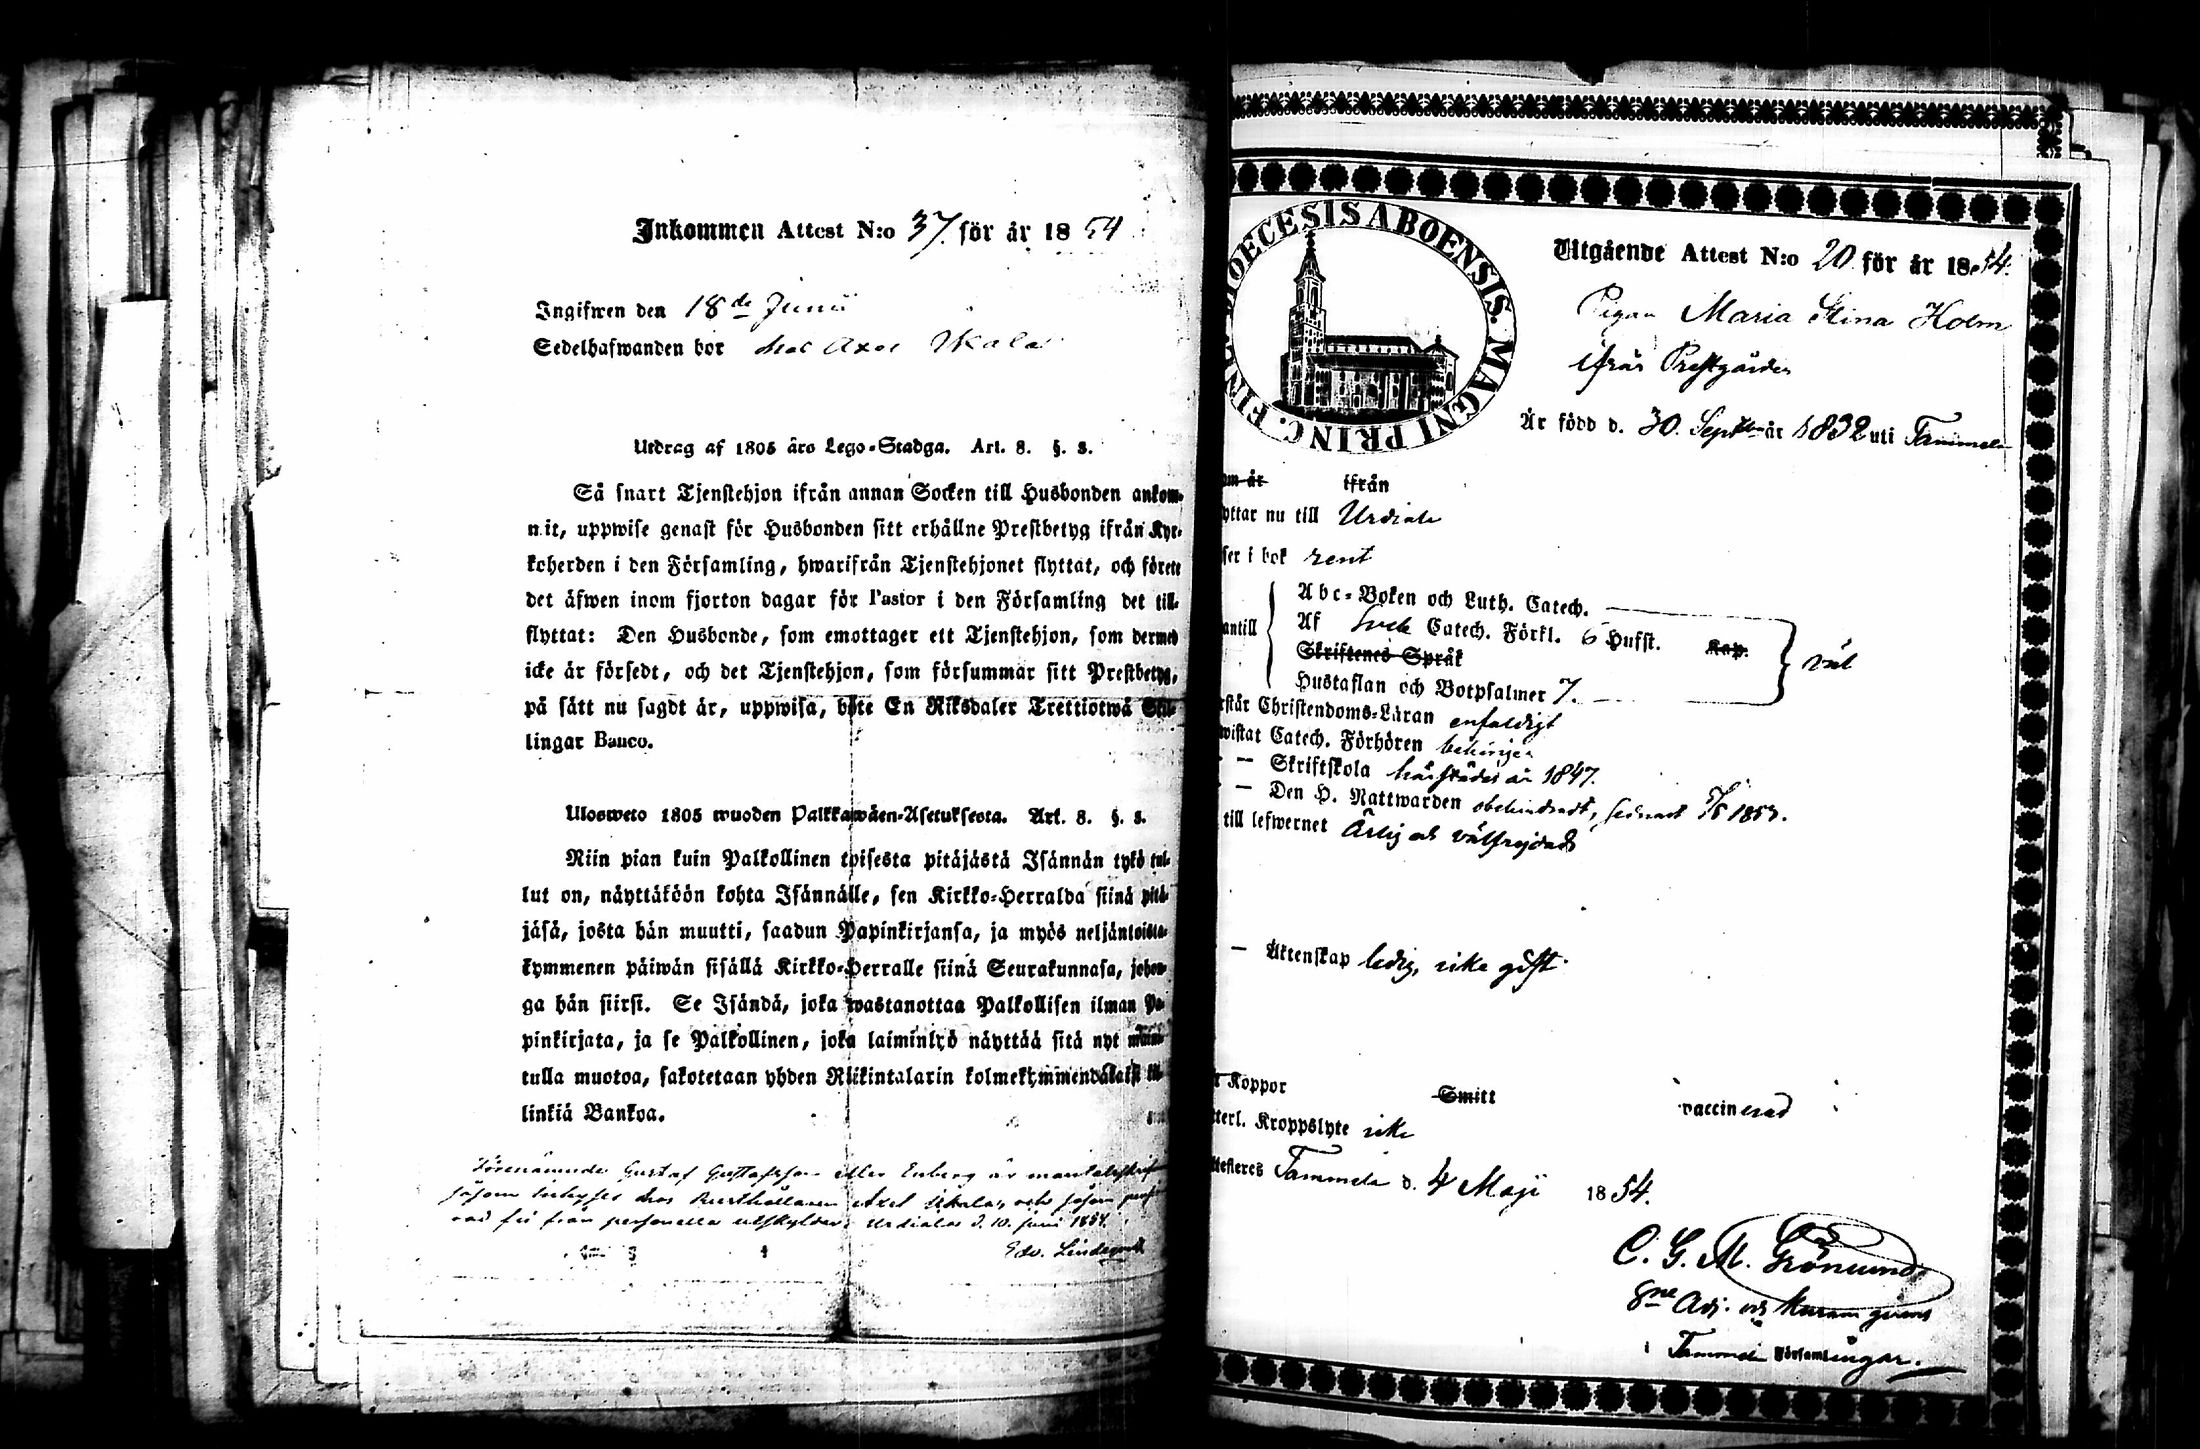 Inkommen Attest N:o 37. för år 1854
Ingifwen den 18de Junii
Sedelhafwanden bor hos Axel Ukala
Utdrag af 1805 års Lego-Stadga. Art. 8. §. 8.
Så snart Tjenstehjon ifrån annan Socken till Husbonden ankom-
mit, uppwise genast för Husbonden sitt erhållne Prestbetyg ifrån Kyr-
koherden i den Församling, hwarifrån Tjenstehjonet flyttat, och förete
det äfwen inom fjorton dagar för Pastor i den Församling det till-
flyttat: Den Husbonde, som emottager ett Tjenstehjon, som dermed
icke är försedt, och det Tjenstehjon, som försummar sitt Prestbetyg,
på sätt nu sagdt är, uppwisa, böte En Riksdaler Trettiotwå Skil-
lingar Banco.
Ulosweto 1805 wuoden Palkkawäen-Asetuksesta. Art. 8. §. 8.
Niin pian kuin Palkollinen toisesta pitäjästä Isännän tykö tul-
lut on, näyttäköön kohta Isännälle, sen Kirkko-Herralda siinä pitä-
jäsä, josta hän muutti, saadun Papinkirjansa, ja myös neljäntoista-
kymmenen päiwän sisällä Kirkko-Herralle siinä Seurakunnasa, johon-
ga hän siirsi. Se Isändä, joka wastanottaa Palkollisen ilman Pa-
pinkirjata, ja se Palkollinen, joka laiminlyö näyttää sitä nyt maini-
tulla muotoa, sakotetaan yhden Riikintalarin kolmekymmendäkaksi kil-
linkiä Bankoa.
Förenämnde Gustaf Gustafsson eller Enberg är mantalskrif
såsom inhyses hos Rusthållaren Axel Ukala, och såsom
fri från personella utskylder. Urdiala d. 10. Juni 1854.
Edv. Lindeqvist
DIOECESIS ABOENSIS. MAGNI PRINC. FINL.
Utgående Attest N:o 20 för år 1854.
Pigan Maria Stina Holm
ifrån Prestgården
Är född d. 30. Septber år 1832 uti Tammela
om år ifrån
yttar nu till Urdiala
ser i bok rent
Abc-Boken och Luth. Catech.
antill Af Sveb Catech. Förkl. 6 Hufst. Kap. väl
Skriftenes Språk
Hustaflan och Botpsalmer 7.
rstår Christendoms-Läran enfaldigt
wistat Catech. Förhören behörigen
— Skriftskola härstädes år 1847.
— Den H. Nattwarden obehindradt, senast 1853.
till lefwernet Ärlig och välfrejdad
— Äktenskap ledig, icke gift
t Koppor Smitt vaccinerad
tterl. Kroppslyte icke
ttesteres Tammela d. 4 Maji 1854.
C. G. M. Grönlund
Adj. och
i Tammela Församlingar.